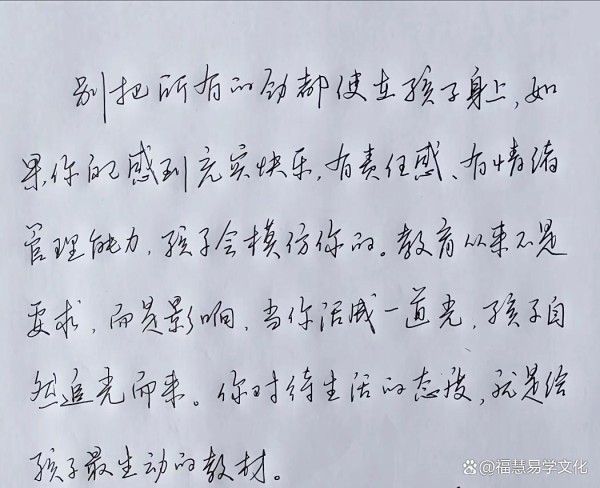 别把所有的劲都使在孩子身上,如
果你自己感到充实快乐,有责任感、有情绪
管理能力,孩子会模仿你的。教育从来不是
要求,而是影响,当你活成一道光,孩子自
然追光而来。你对待生活的态度,就是给
孩子最生动的教材。
@福慧易学文化